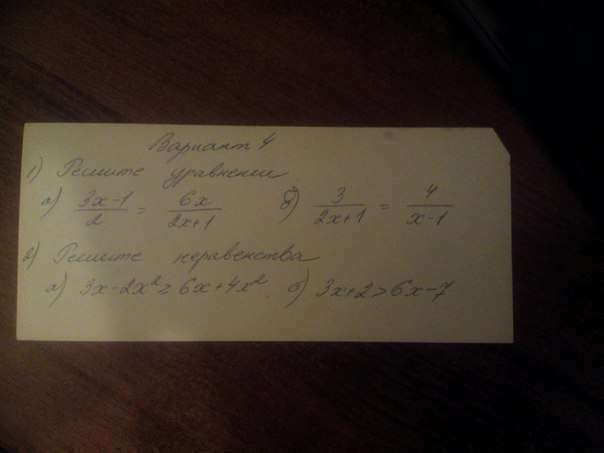 Вариант 4
1) Решите уравнения
а) (3x-1)/2 = 6x/(2x+1) б) 3/(2x+1) = 4/(x-1)
2) Решите неравенства
а) 3x-2x² ≥ 6x+4x² б) 3x+2>6x-7